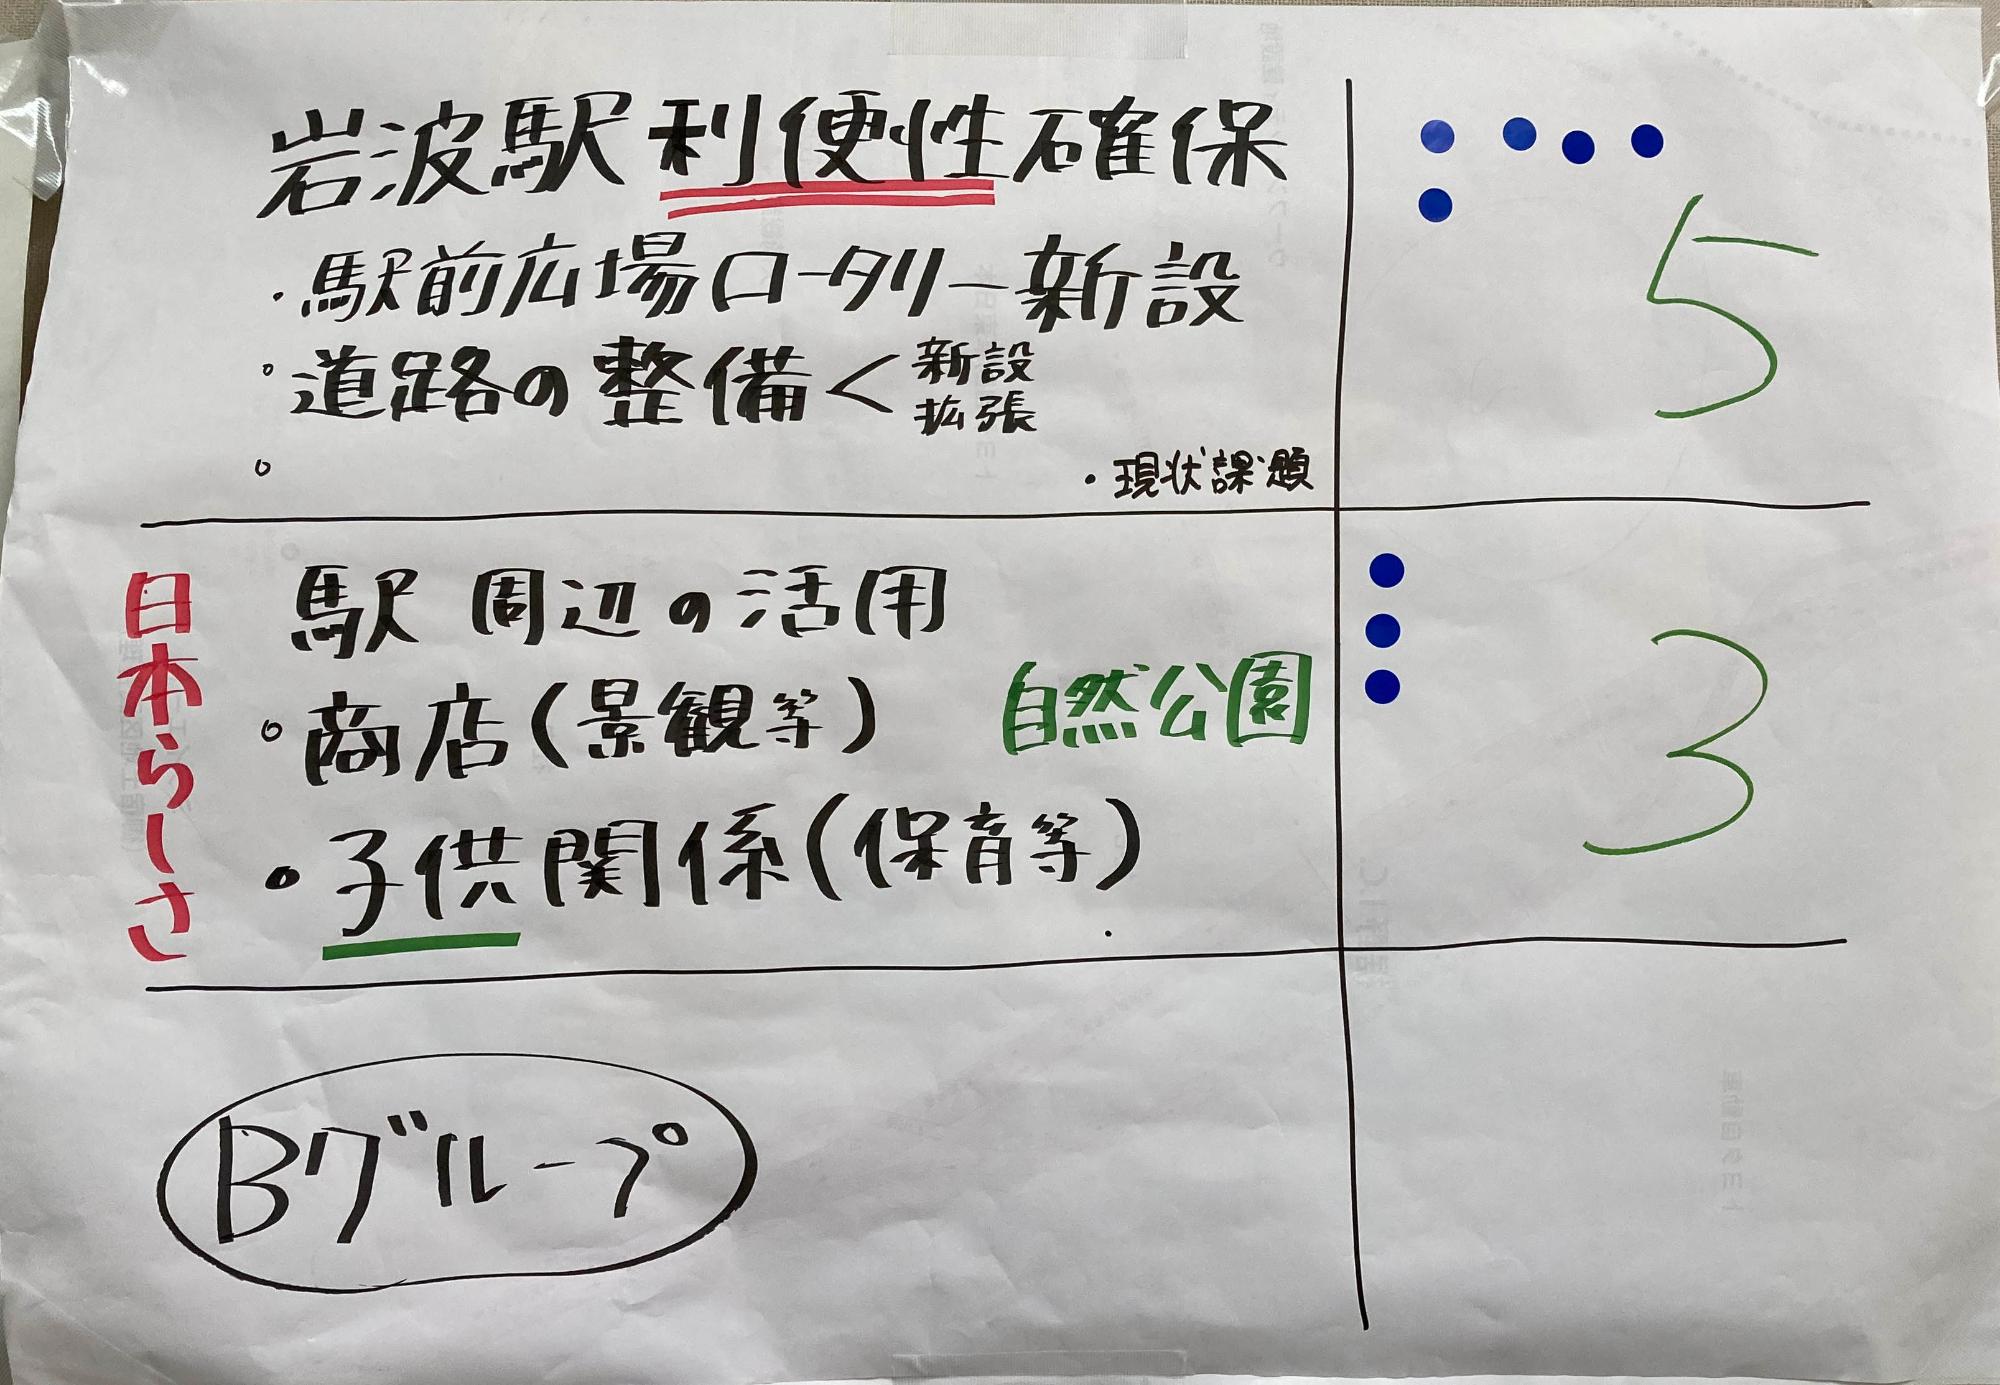 岩波駅利便性確保
・駅前広場ロータリー新設
。道路の整備＜新設
拡張
。
・現状課題
5
日本らしさ
駅周辺の活用
。商店(景観等)
自然公園
・子供関係(保育等)
3
Bグループ